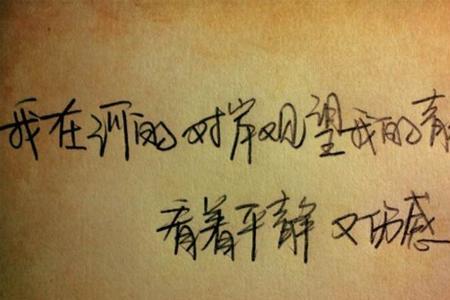 我在河的对岸观望我的青
看着平静又伤感